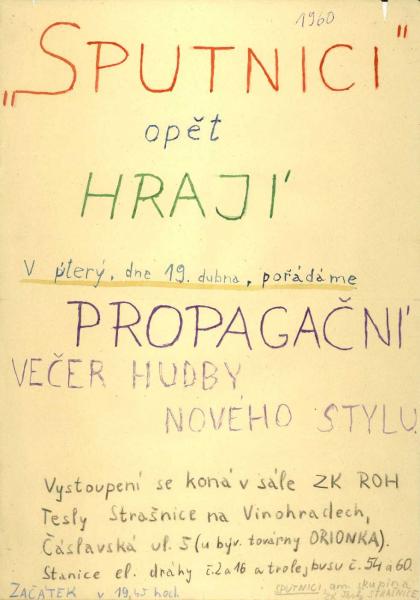 1960
„SPUTNICI“
opět
HRAJÍ
V úterý, dne 19. dubna, pořádáme
PROPAGAČNÍ
VEČER HUDBY
NOVÉHO STYLU
Vystoupení se koná v sále ZK ROH
Tesly Strašnice na Vinohradech,
Čáslavská ul. 5 (u býv. továrny ORIONKA).
Stanice el. dráhy č. 2 a 16 a trolejbusu č. 54 a 60.
ZAČÁTEK v 19,45 hod.
SPUTNICI, am. skupina
ZK Tesly STRAŠNICE